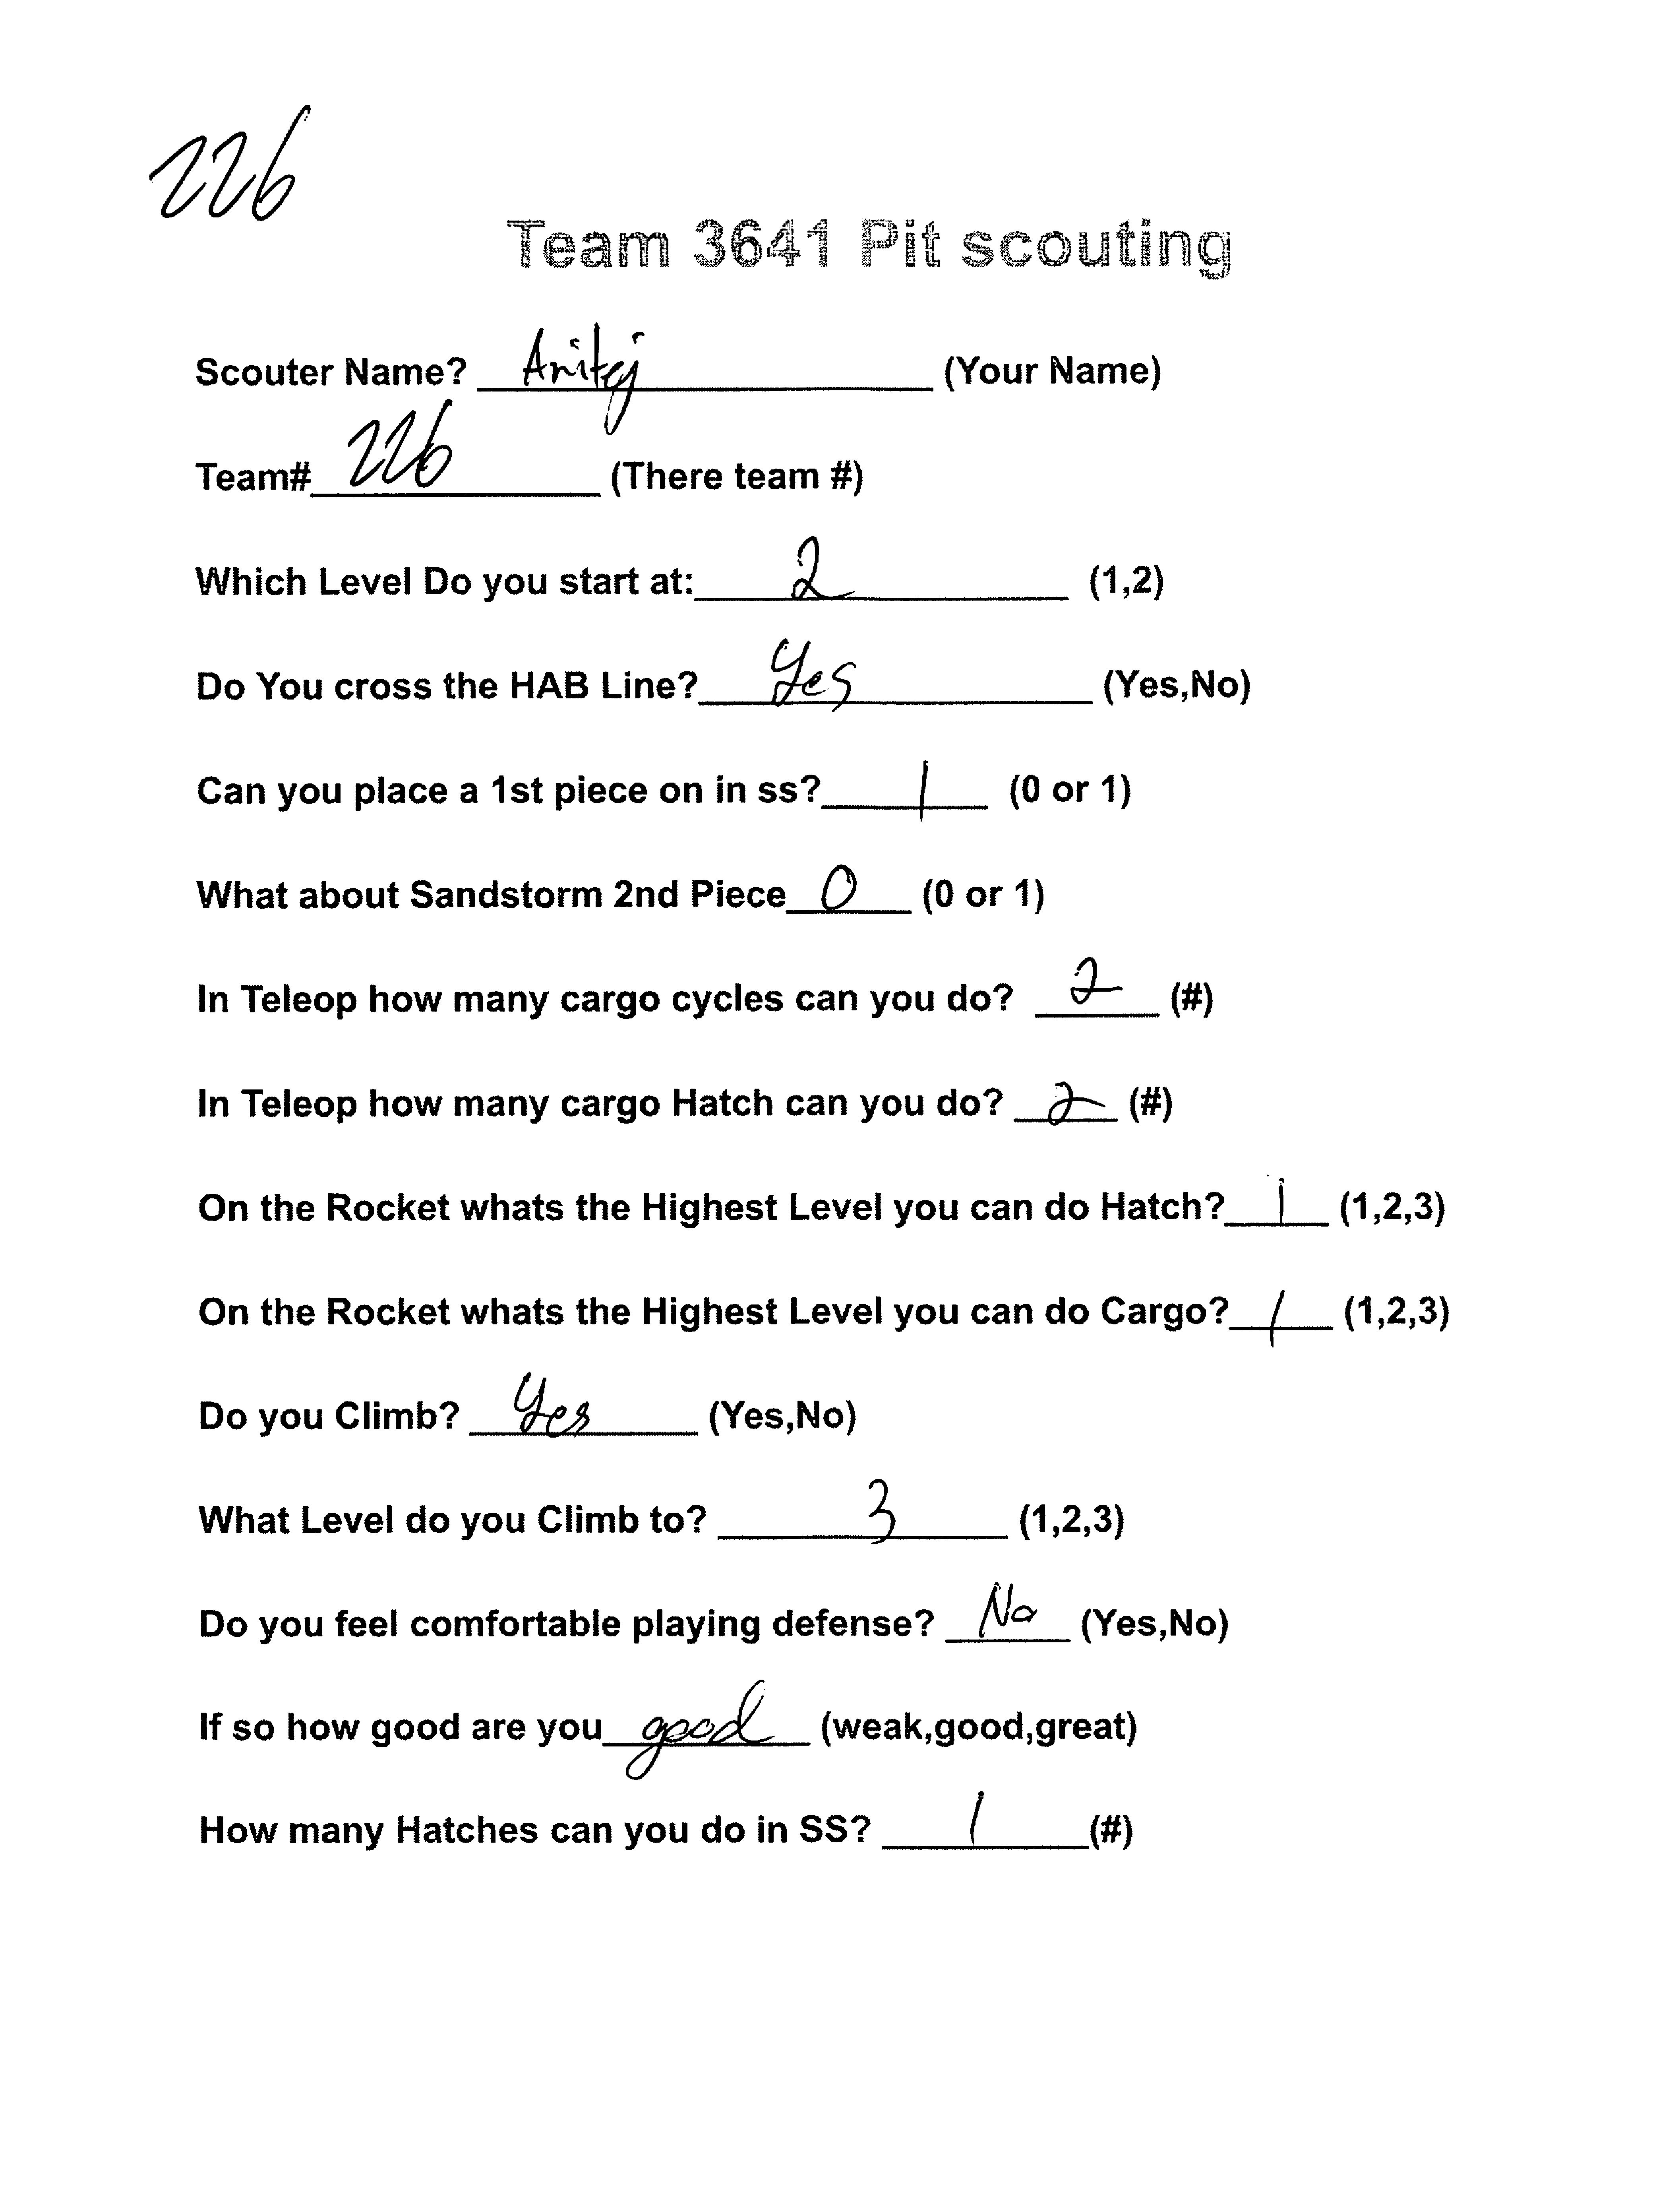 226
Team 3641 Pit scouting
Scouter Name? Anitej (Your Name)
Team# 226 (There team #)
Which Level Do you start at: 2 (1,2)
Do You cross the HAB Line? Yes (Yes,No)
Can you place a 1st piece on in ss? 1 (0 or 1)
What about Sandstorm 2nd Piece 0 (0 or 1)
In Teleop how many cargo cycles can you do? 2 (#)
In Teleop how many cargo Hatch can you do? 2 (#)
On the Rocket whats the Highest Level you can do Hatch? 1 (1,2,3)
On the Rocket whats the Highest Level you can do Cargo? 1 (1,2,3)
Do you Climb? Yes (Yes,No)
What Level do you Climb to? 3 (1,2,3)
Do you feel comfortable playing defense? No (Yes,No)
If so how good are you good (weak,good,great)
How many Hatches can you do in SS? 1 (#)